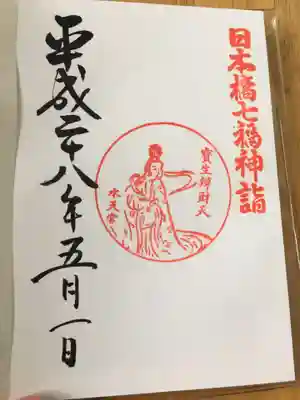 日本橋七福神詣
寳生辨財天
水天宮
平成二十八年五月一日